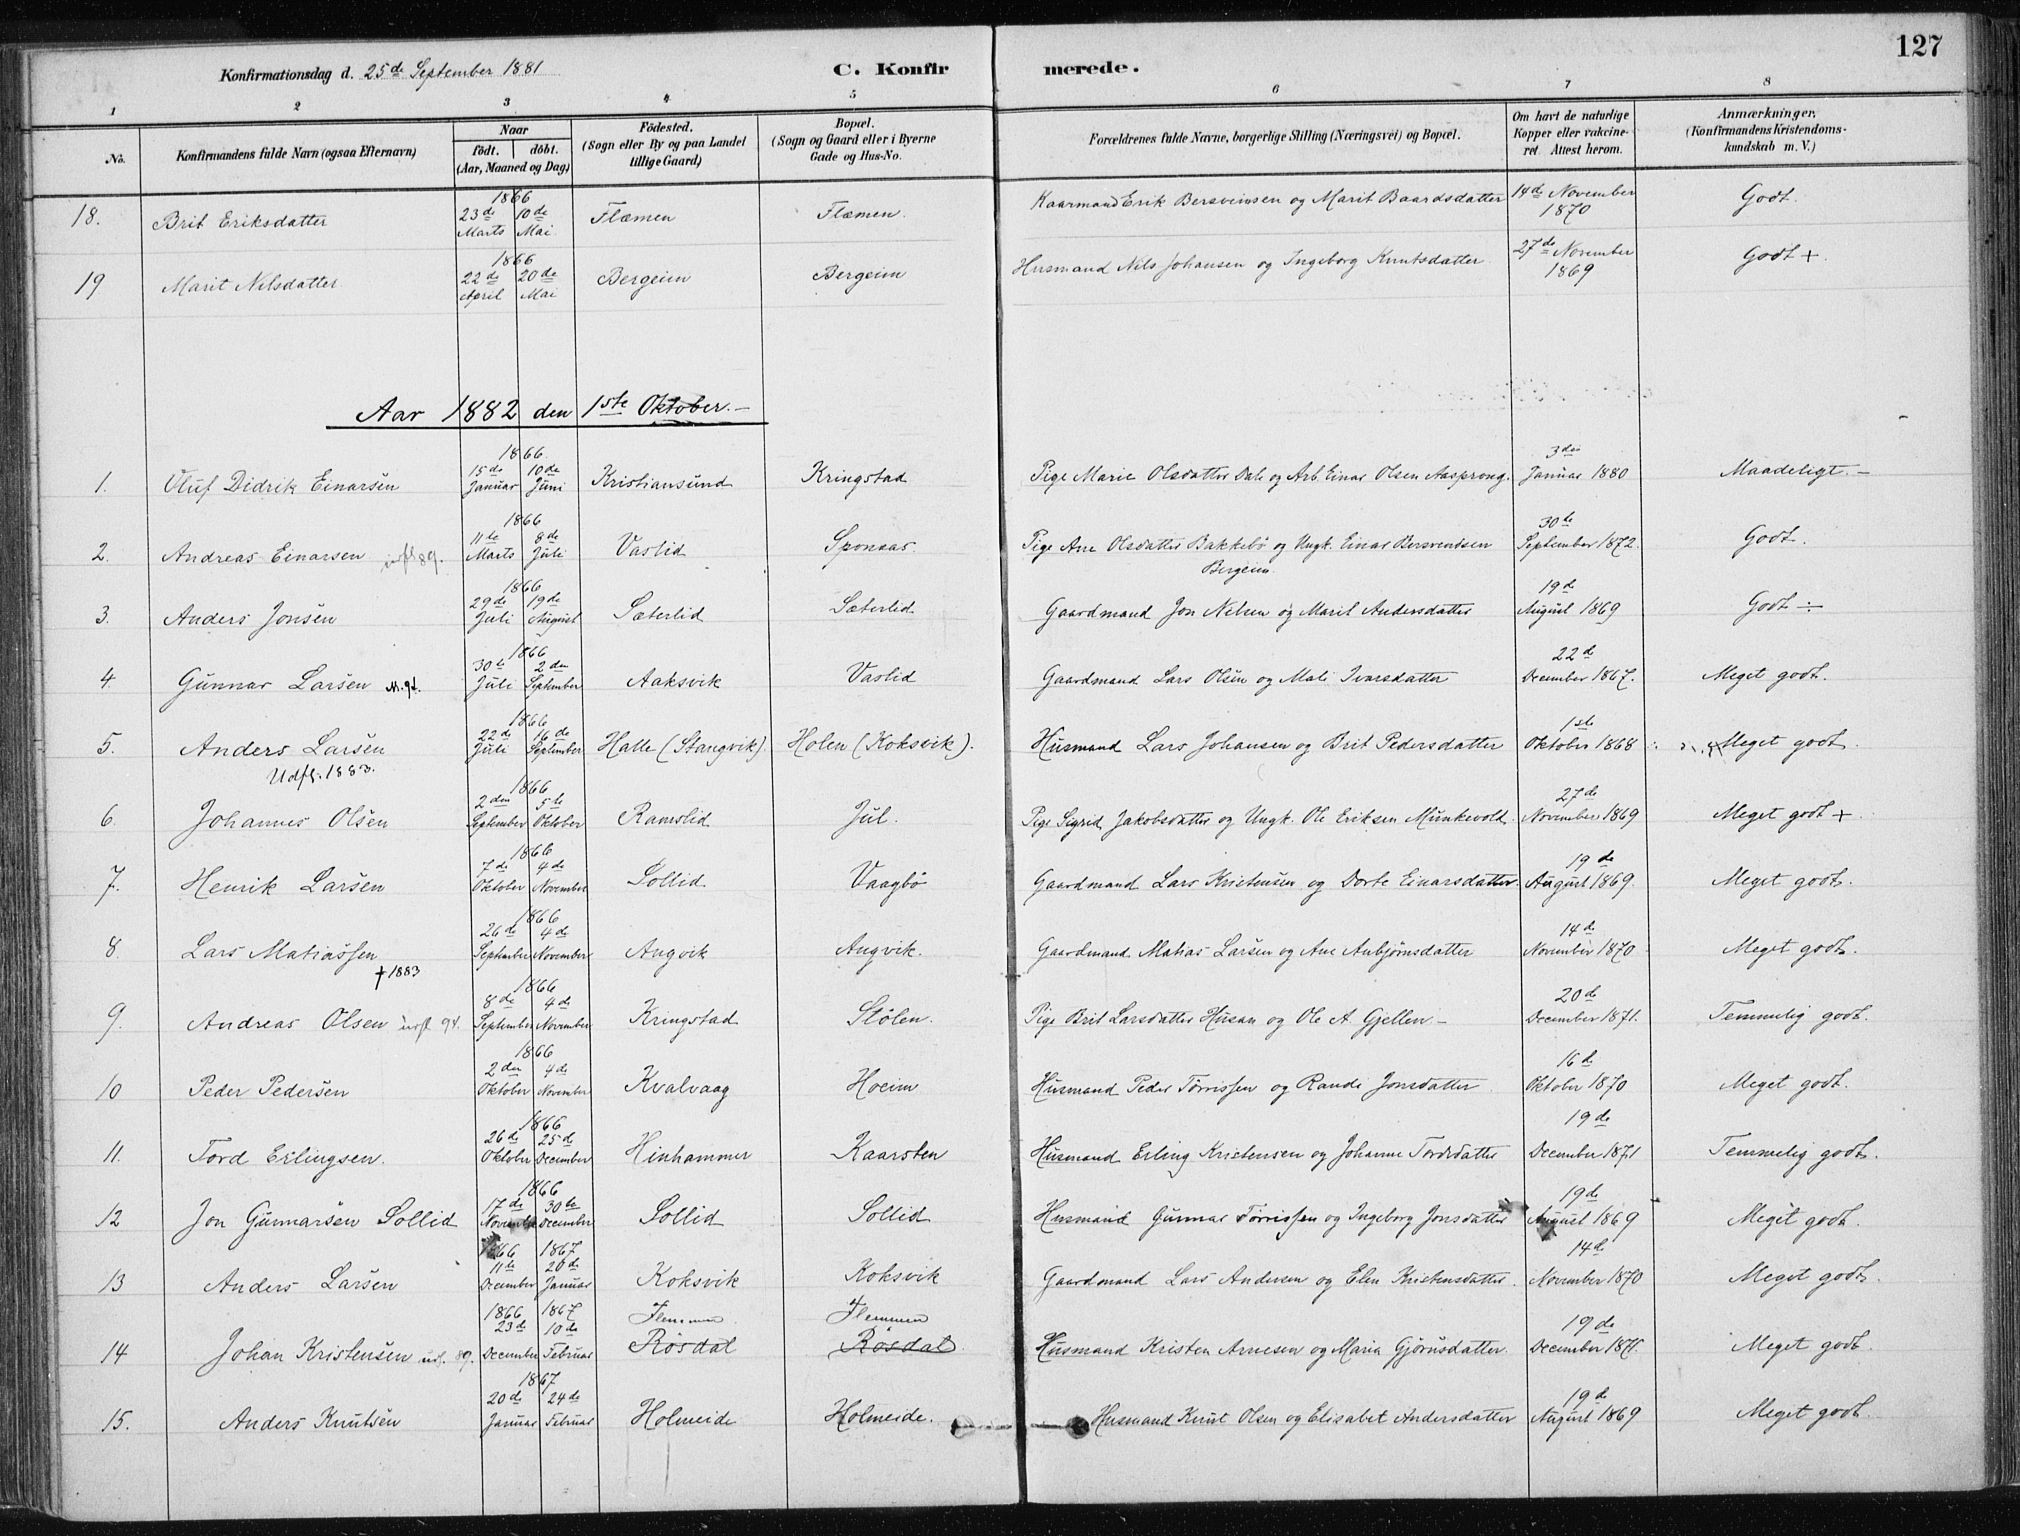 127
Konfirmationsdag d. 25de September 1881
C. Konfirmerede.
1 2 3 4 5 6 7 8
No. | Konfirmandens fulde Navn (ogsaa Efternavn) | Naar födt. döbt. (Aar, Maaned og Dag) | Födested. (Sogn eller By og paa Landet tillige Gaard) | Bopæl. (Sogn og Gaard eller i Byerne Gade og Hus-No. | Forældrenes fulde Navne, borgerlige Stilling (Næringsvei) og Bopæl. | Om havt de naturlige Kopper eller vakcineret. Attest herom. | Anmærkninger. (Konfirmandens Kristendomskundskab m. V.)
18. Brit Eriksdatter | 1866 23de Marts | 10de Mai | Flemen | Flemen. | Kaarmand Erik Bersveinsen og Marit Baardsdatter | 14de November 1870 | Godt.
19 Marit Nilsdatter | 1866 22de April | 20de Mai | Bergeim | Bergeim | Husmand Nils Johansen og Ingeborg Knutsdatter | 27de November 1869 | Godt +.
Aar 1882 den 1ste Oktober. —
1. Oluf Didrik Einarsen | 1866. 15de Januar | 10de Juni | Kristiansund | Kringstad | Pige Marie Olsdatter Dale og Arb. Einar Olsen Aasprong. | 3die Januar 1880 | Maadeligt. —
2. Andreas Einarsen 89. | 1866 11te Marts | 8de Juli | Vaslid | | Pige Ane Olsdatter Bakkebö og Ungk. Einar Bersvendsen Bergeim | 30te September 1872. | Godt.
3. Anders Jonsen | 1866 29de Juli | 19de August | Sæterlid | Sæterlid | Gaardmand Jon Nelsen og Marit Andersdatter | 19de August 1869 | Godt ÷
4. Gunnar Larsen | 1866 30te Juli | 2den September | Aaksvik | Vaslid | Gaardmand Lars Olsen og Mali Ivarsdatter | 22de December 1867. | Meget godt.
5. Anders Larsen Udfl. 1883. | 1866 22de Juli | 16de September | Halle (Stangvik) | Holen (Koksvik). | Husmand Lars Johansen og Brit Pedersdatter | 1ste Oktober 1868 | Meget godt.
6. Johannes Olsen | 1866 2den September | 5te Oktober | Ramslid | Jul. | Pige Sigrid Jakobsdatter og Ungk. Ole Eriksen Munkevold. | 27de November 1869 | Meget godt +.
7. Henrik Larsen | 1866 7de Oktober | 4de November | Sollid | Vaagbö | Gaardmand Lars Kristensen og Dorte Einarsdatter. | 19de August 1869. | Meget godt.
8. Lars Matiassen † 1883 | 1866 26de September | 4de November | Angvik | Angvik. | Gaardmand Matias Larsen og Ane Anbjörnsdatter | 14de November 1870 | Meget godt.
9. Andreas Olsen 94. | 1866 8de September | 4de November | Kringstad | Stölen. | Pige Brit Larsdatter Husan og Ole A. Gjellen — | 20de December 1871. | Temmelig godt.
10 Peder Pedersen | 1866 2den Oktober | 4de November | Kvalvaag | Hoeim | Husmand Peder Törrissen og Randi Jonsdatter | 16de Oktober 1870 | Meget godt.
11. Tord Erlingsen. | 1866 26de Oktober | 25de December | Hinhammer | Kaarsten | Husmand Erling Kristensen og Johanne Tordsdatter | 19de December 1871 | Temmelig godt.
12 Jon Gunnarsen Sollid | 1866 17de November | 30te December | Sollid | Sollid | Husmand Gunnar Törrissen og Ingeborg Jonsdatter | 19de August 1869 | Meget godt.
13 Anders Larsen | 1866 11te December | 1867 20de Januar | Koksvik | Koksvik | Gaardmand Lars Andersen og Elen Kristensdatter. | 14de November 1870 | Meget godt.
14 Johan Kristensen 89. | 1866 23de December | 1867 10de Februar | Flemmen Rösdal | Flemmen Rösdal. | Husmand Kristen Arnesen og Maria Gjörusdatter. | 19de December 1871. | Meget godt.
15. Anders Knutsen | 1867 20de Januar | 24de Februar | Holmeide | Holmeide. | Husmand Knut Olsen og Elisabet Andersdatter | 19de August 1869 | Meget godt.